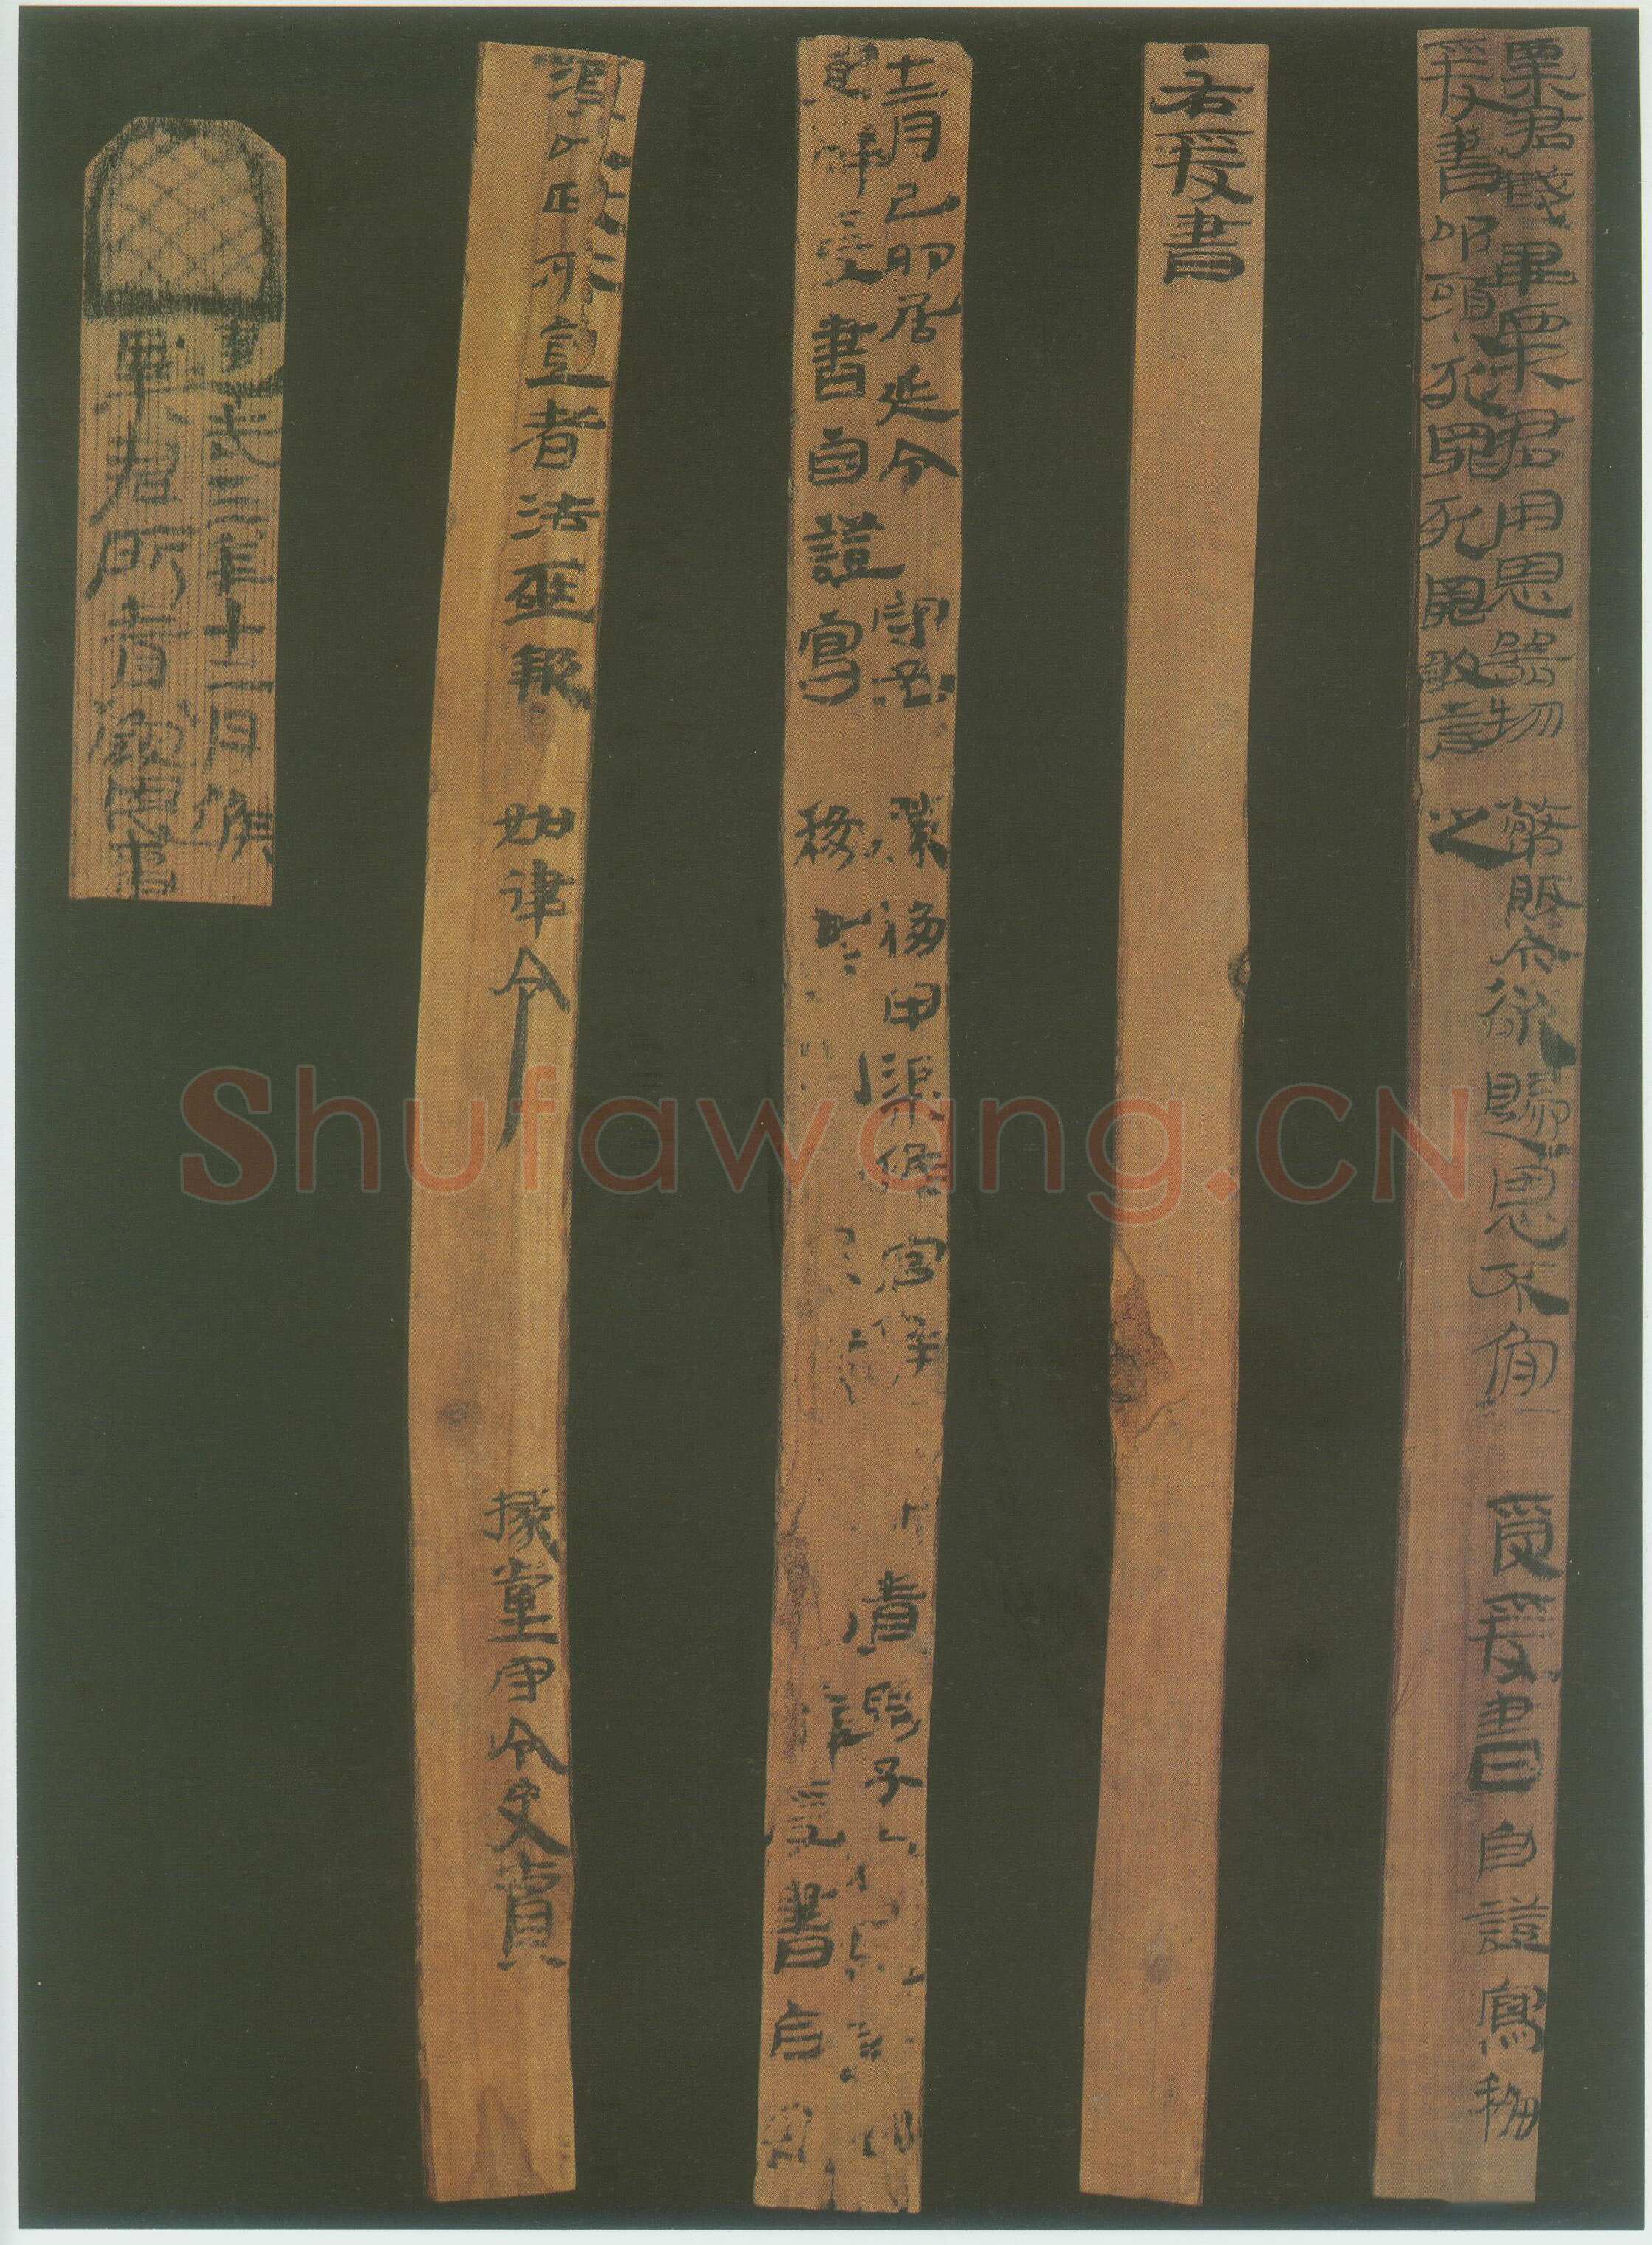 粟君錢畢粟君用恩器物幣敗今欲歸恩不肯受爰書自證寫移
爰書叩頭死罪死罪敢言之
右爰書
十二月己卯居延令守丞勝移甲渠候官候責男子
置辭爰書自證寫移書辭爰書自
須以政不直者法亟報如律令掾黨守令史賞
建武三年十二月候
粟君所責寇恩事
Shufawang.CN